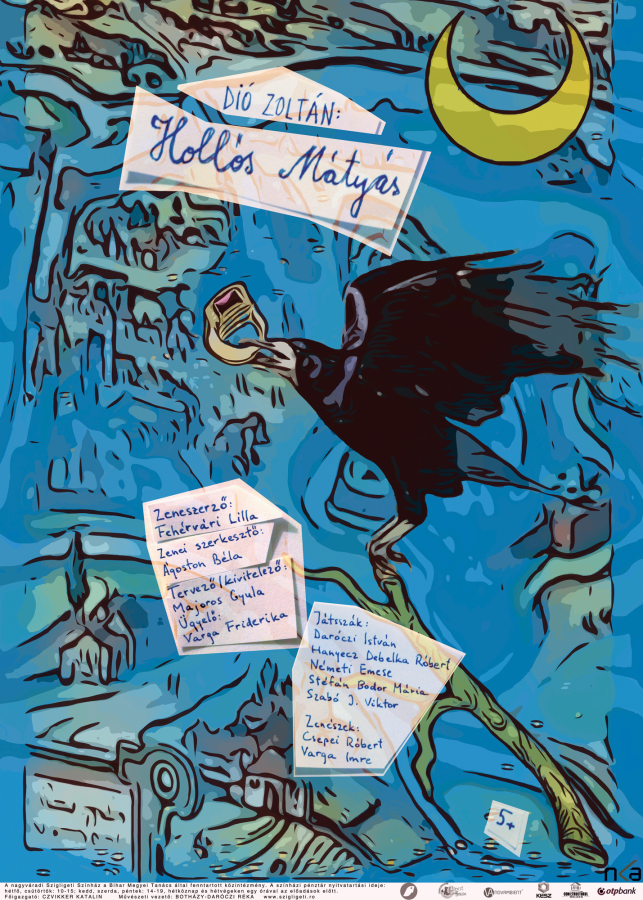 DIÓ ZOLTÁN:
Hollós Mátyás
Zeneszerző:
Fehérvári Lilla
Zenei szerkesztő:
Ágoston Béla
Tervező/kivitelező:
Majoros Gyula
Ügyelő:
Varga Friderika
Játsszák:
Daróczi István
Hanyecz Debelka Róbert
Németi Emese
Stéfán Bodor Mária
Szabó J. Viktor
Zenészek:
Csepei Róbert
Varga Imre
5+
nka
A nagyváradi Szigligeti Színház a Bihar Megyei Tanács által fenntartott közintézmény. A színházi pénztár nyitvatartási ideje:
hétfő, csütörtök: 10-15; kedd, szerda, péntek: 14-19, hétköznap és hétvégeken egy órával az előadások előtt.
Főigazgató: CZVIKKER KATALIN Művészeti vezető: BOTHÁZY-DARÓCZI RÉKA www.szigligeti.ro
KÉSZ
otpbank